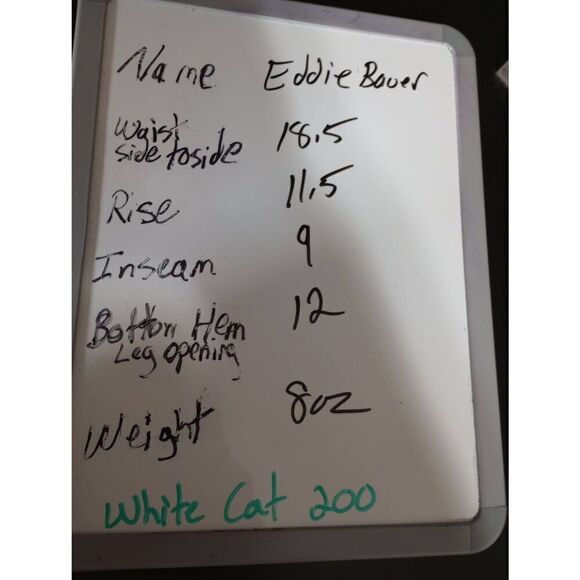 Name Eddie Bauer
Waist
side to side 18.5
Rise 11.5
Inseam 9
Bottom Hem 12
Leg opening
Weight 8oz
White Cat 200